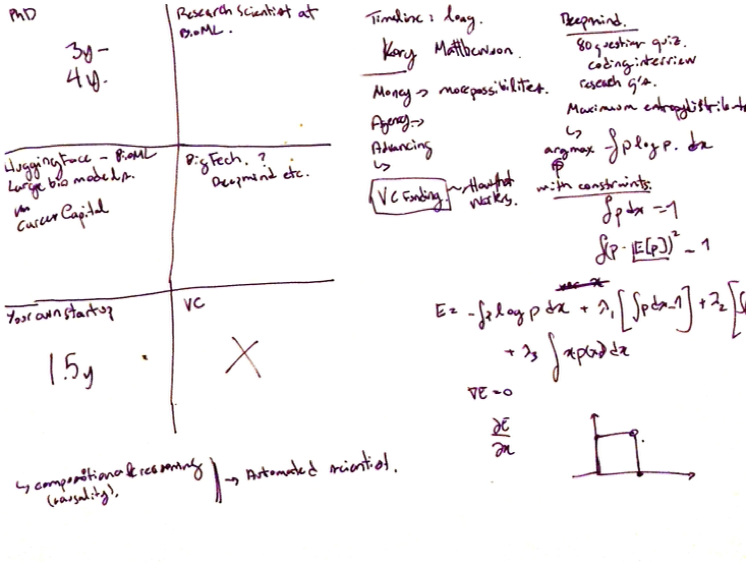 PhD
3y -
4y.
Research Scientist at
BioML.
HuggingFace - BioML
Large bio models.
Career Capital
BigTech. ?
Deepmind etc.
Your own startup
1.5y
VC
X
↳ compositional reasoning
(causality).
→ Automated scientist.
Timeline: long.
Kory Mathewson.
Money → more possibilities.
Agency →
Advancing
↳
VC Funding
works.
Deepmind.
80 question quiz.
coding interview
research q's.
Maximum entropy distribut
↳
argmax -∫p log p. dx
p
with constraints.
∫p dx = 1
∫(p - E[p])² = 1
E = -∫p log p dx + λ₁ [∫p dx - 1] + λ₂ [∫
+ λ₃ ∫ x p(x) dx
∇E = 0
∂E
∂x